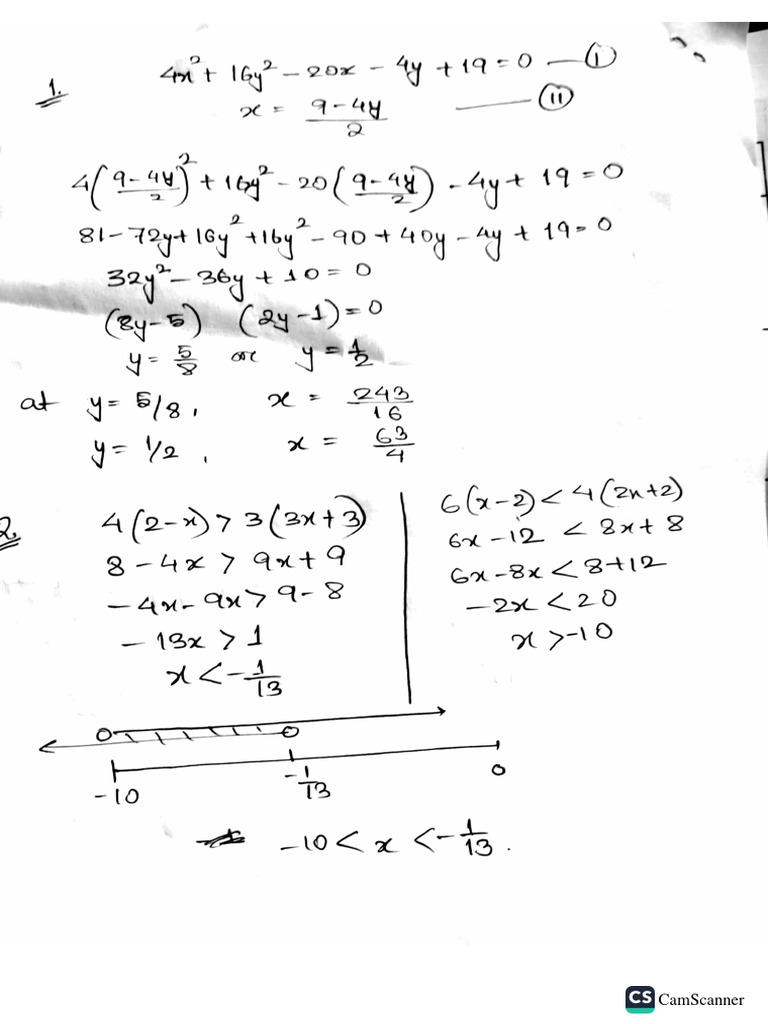 1. 4x² + 16y² - 20x - 4y + 19 = 0 — (i)
x = (9-4y)/2 — (ii)
4((9-4y)/2)² + 16y² - 20((9-4y)/2) - 4y + 19 = 0
81 - 72y + 16y² + 16y² - 90 + 40y - 4y + 19 = 0
32y² - 36y + 10 = 0
(8y-5) (2y-1) = 0
y = 5/8 or y = 1/2
at y = 5/8, x = 243/16
y = 1/2, x = 63/4
2. 4(2-x) > 3(3x+3)
8 - 4x > 9x + 9
-4x - 9x > 9 - 8
- 13x > 1
x < -1/13
6(x-2) < 4(2x+2)
6x - 12 < 8x + 8
6x - 8x < 8 + 12
-2x < 20
x > -10
-10 -1/13 0
-10 < x < -1/13.
CS CamScanner